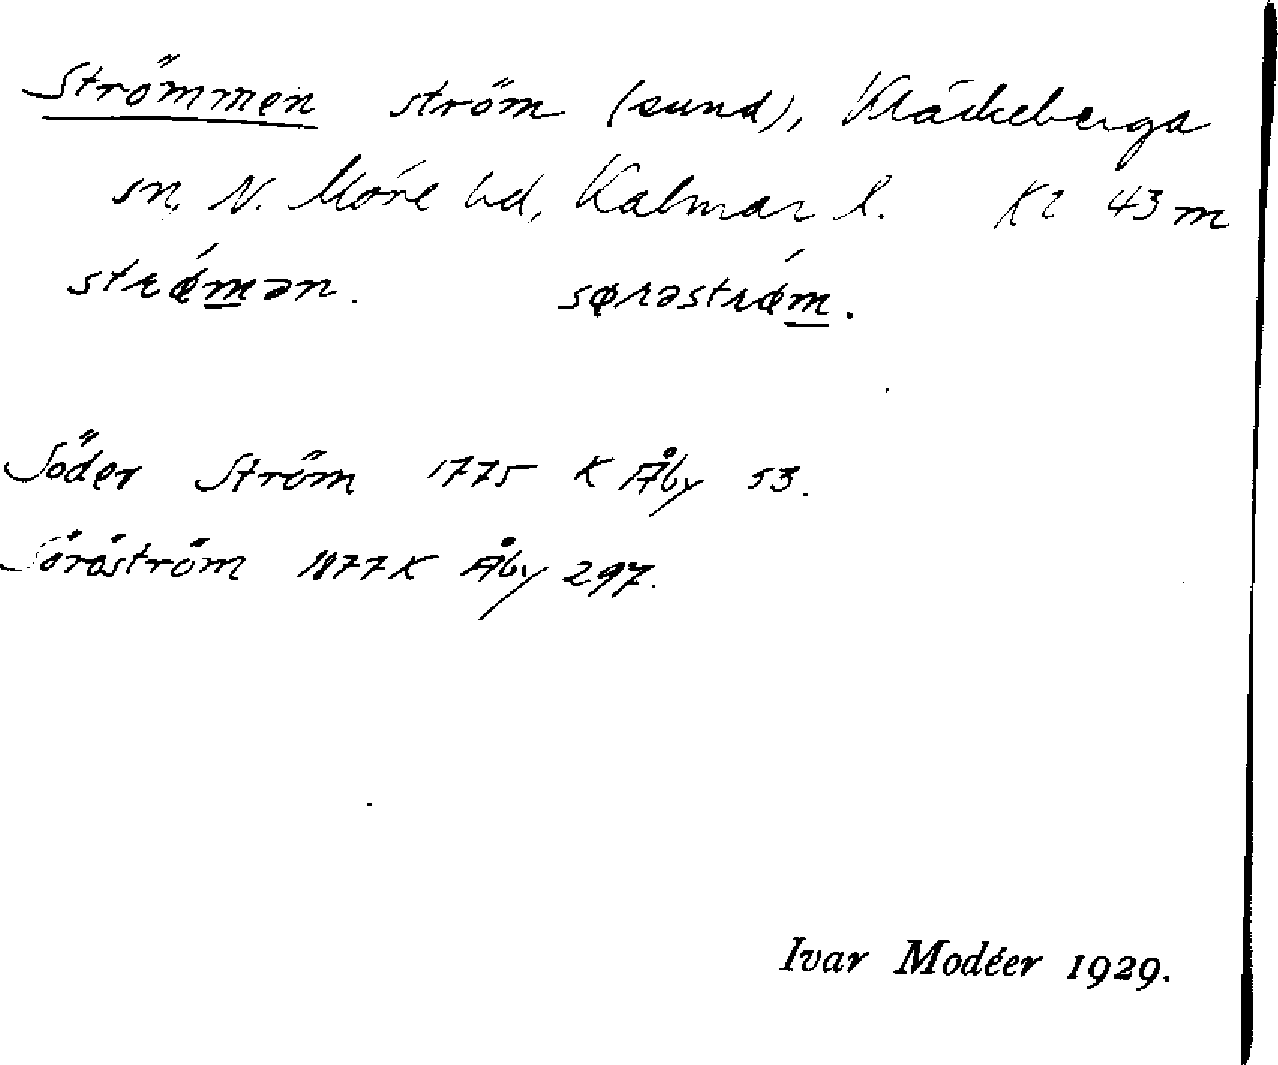 Strömmen ström (sund), Kläckeberga
sn, N. Möre hd, Kalmar l. Kl 43 m
strǿmən. sørəstrǿm.
Söder Ström 1775 K Åby 53.
Söråström 1877 K Åby 297.
Ivar Modéer 1929.